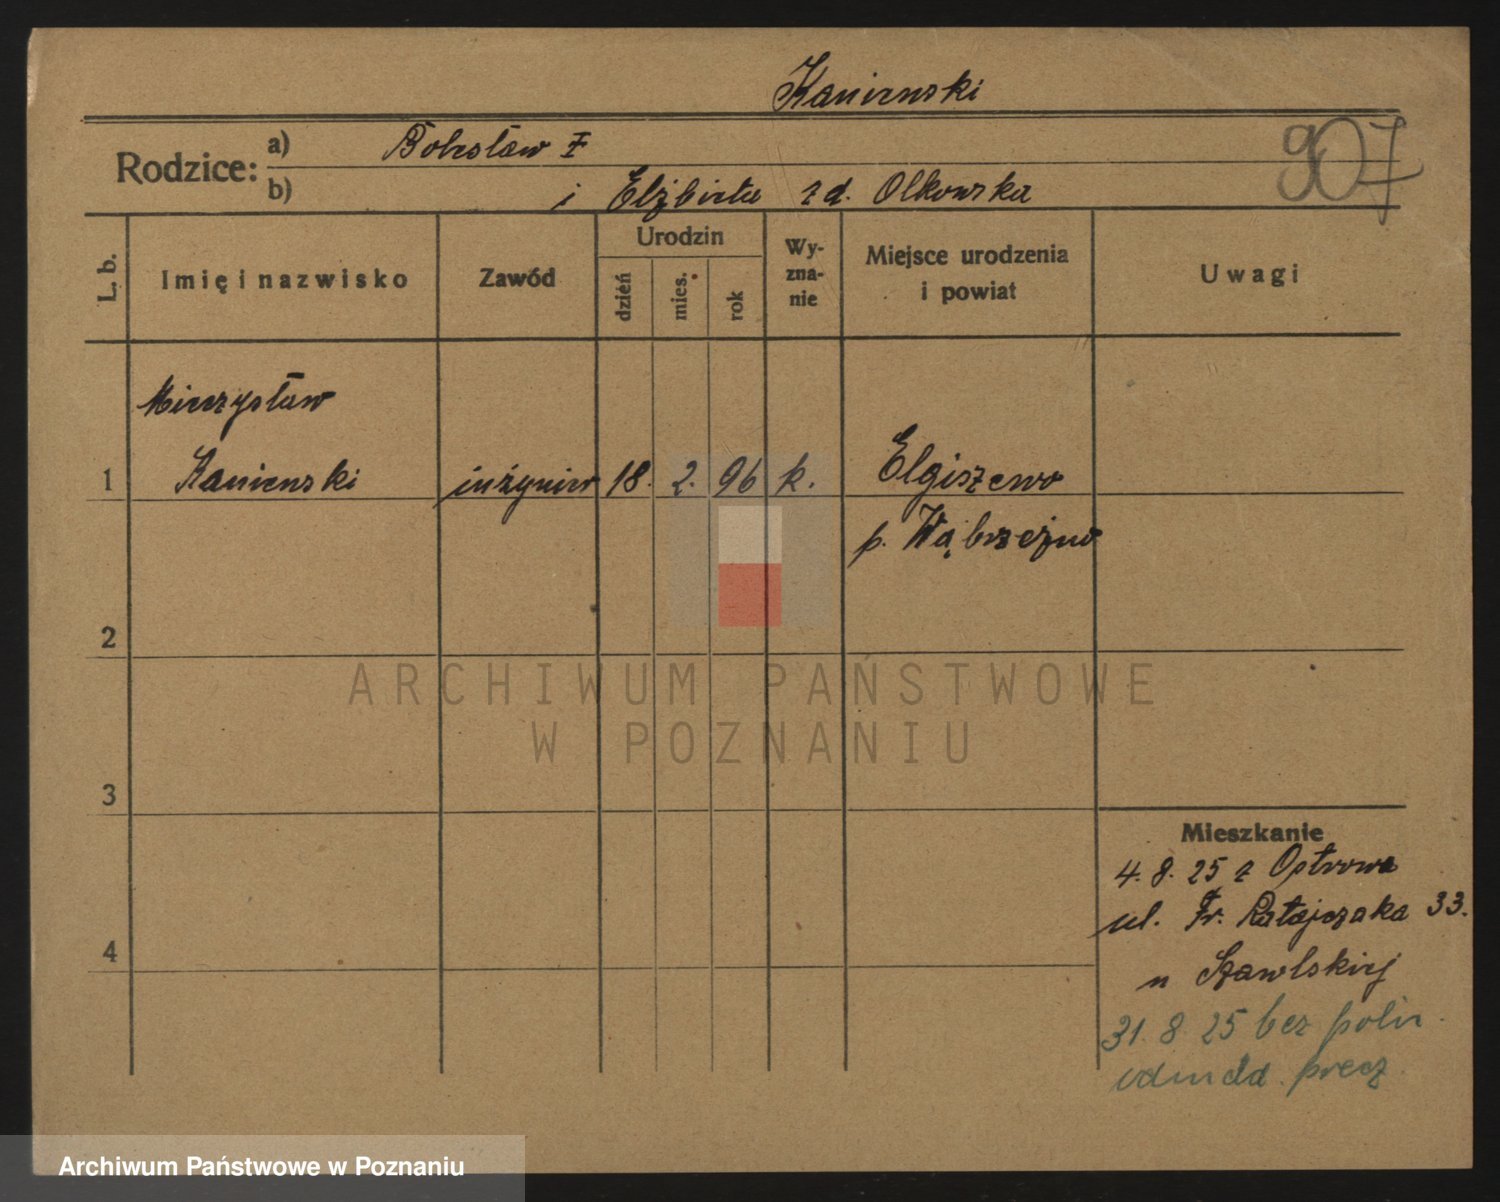 Kaniewski
Rodzice: a) Bolesław
b) i Elżbieta zd. Olkowska
907
L. b.
Imię i nazwisko
Zawód
Urodzin
dzień
mies.
rok
Wy-
zna-
nie
Miejsce urodzenia
i powiat
Uwagi
Mieczysław
1 Kaniewski inżynier 18. 2. 96 k. Elgiszewo
p. Wąbrzeźno
2
3
4
Mieszkanie
4. 8. 25 z Ostrowa
ul. Fr. Ratajczaka 33.
u Szawlskiej
31. 8. 25 bez
ARCHIWUM PAŃSTWOWE
W POZNANIU
Archiwum Państwowe w Poznaniu